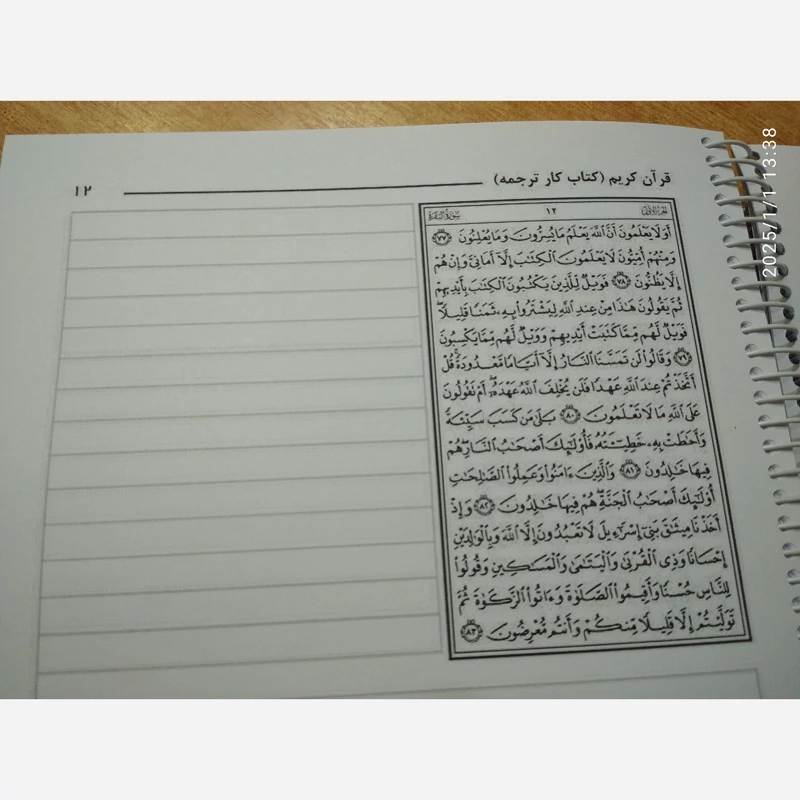 قرآن کریم (کتاب کار ترجمه) ۱۲
الجزء الأول ١٢ سورة البقرة
أَوَلَا يَعْلَمُونَ أَنَّ ٱللَّهَ يَعْلَمُ مَا يُسِرُّونَ وَمَا يُعْلِنُونَ ﴿٧٧﴾
وَمِنْهُمْ أُمِّيُّونَ لَا يَعْلَمُونَ ٱلْكِتَٰبَ إِلَّآ أَمَانِىَّ وَإِنْ هُمْ
إِلَّا يَظُنُّونَ ﴿٧٨﴾ فَوَيْلٌ لِّلَّذِينَ يَكْتُبُونَ ٱلْكِتَٰبَ بِأَيْدِيهِمْ
ثُمَّ يَقُولُونَ هَٰذَا مِنْ عِندِ ٱللَّهِ لِيَشْتَرُوا۟ بِهِۦ ثَمَنًا قَلِيلًا ۖ
فَوَيْلٌ لَّهُم مِّمَّا كَتَبَتْ أَيْدِيهِمْ وَوَيْلٌ لَّهُم مِّمَّا يَكْسِبُونَ
﴿٧٩﴾ وَقَالُوا۟ لَن تَمَسَّنَا ٱلنَّارُ إِلَّآ أَيَّامًا مَّعْدُودَةً ۚ قُلْ
أَتَّخَذْتُمْ عِندَ ٱللَّهِ عَهْدًا فَلَن يُخْلِفَ ٱللَّهُ عَهْدَهُۥٓ ۖ أَمْ تَقُولُونَ
عَلَى ٱللَّهِ مَا لَا تَعْلَمُونَ ﴿٨٠﴾ بَلَىٰ مَن كَسَبَ سَيِّئَةً
وَأَحَٰطَتْ بِهِۦ خَطِيٓـَٔتُهُۥ فَأُو۟لَٰٓئِكَ أَصْحَٰبُ ٱلنَّارِ ۖ هُمْ
فِيهَا خَٰلِدُونَ ﴿٨١﴾ وَٱلَّذِينَ ءَامَنُوا۟ وَعَمِلُوا۟ ٱلصَّٰلِحَٰتِ
أُو۟لَٰٓئِكَ أَصْحَٰبُ ٱلْجَنَّةِ ۖ هُمْ فِيهَا خَٰلِدُونَ ﴿٨٢﴾ وَإِذْ
أَخَذْنَا مِيثَٰقَ بَنِىٓ إِسْرَٰٓءِيلَ لَا تَعْبُدُونَ إِلَّا ٱللَّهَ وَبِٱلْوَٰلِدَيْنِ
إِحْسَانًا وَذِى ٱلْقُرْبَىٰ وَٱلْيَتَٰمَىٰ وَٱلْمَسَٰكِينِ وَقُولُوا۟
لِلنَّاسِ حُسْنًا وَأَقِيمُوا۟ ٱلصَّلَوٰةَ وَءَاتُوا۟ ٱلزَّكَوٰةَ ثُمَّ
تَوَلَّيْتُمْ إِلَّا قَلِيلًا مِّنكُمْ وَأَنتُم مُّعْرِضُونَ ﴿٨٣﴾
2025/1/1 13:38